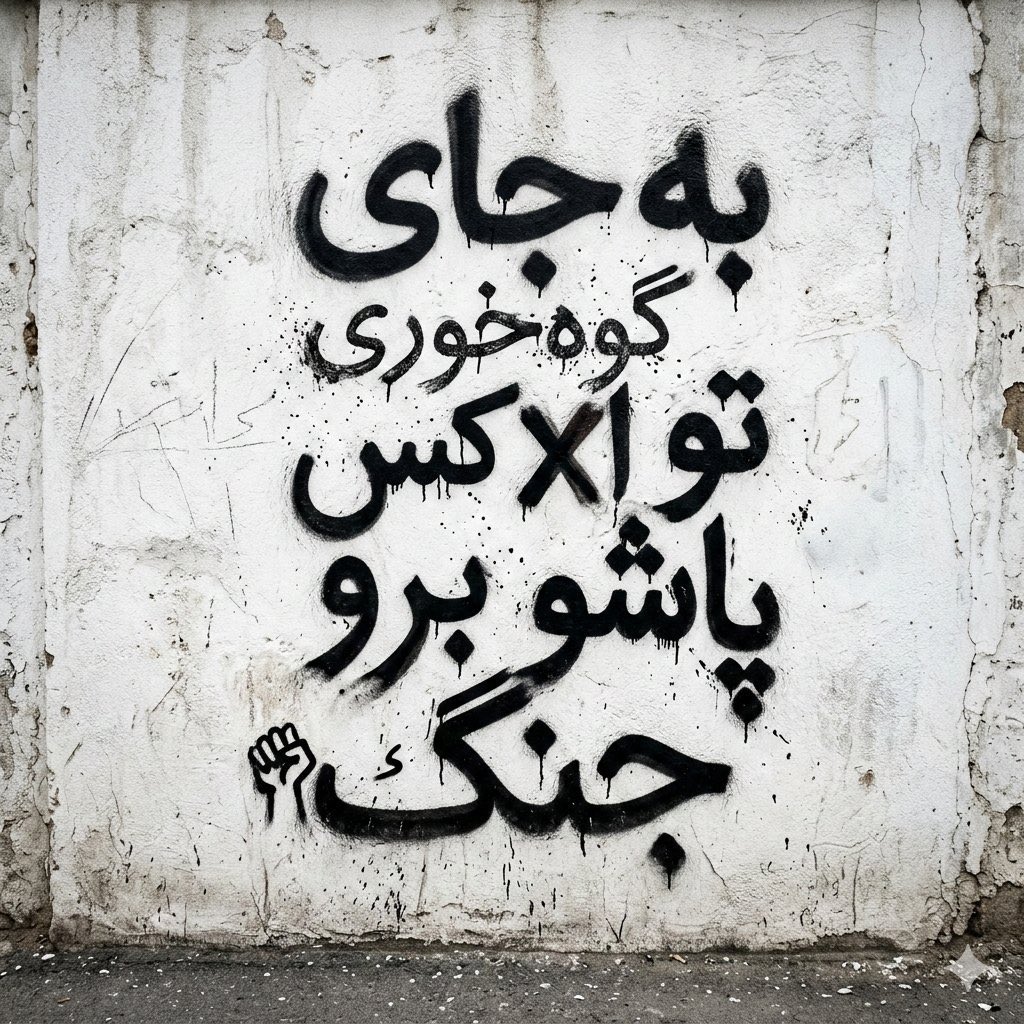 به جای
گوه خوری
تو اX کس
پاشو برو
جنگ